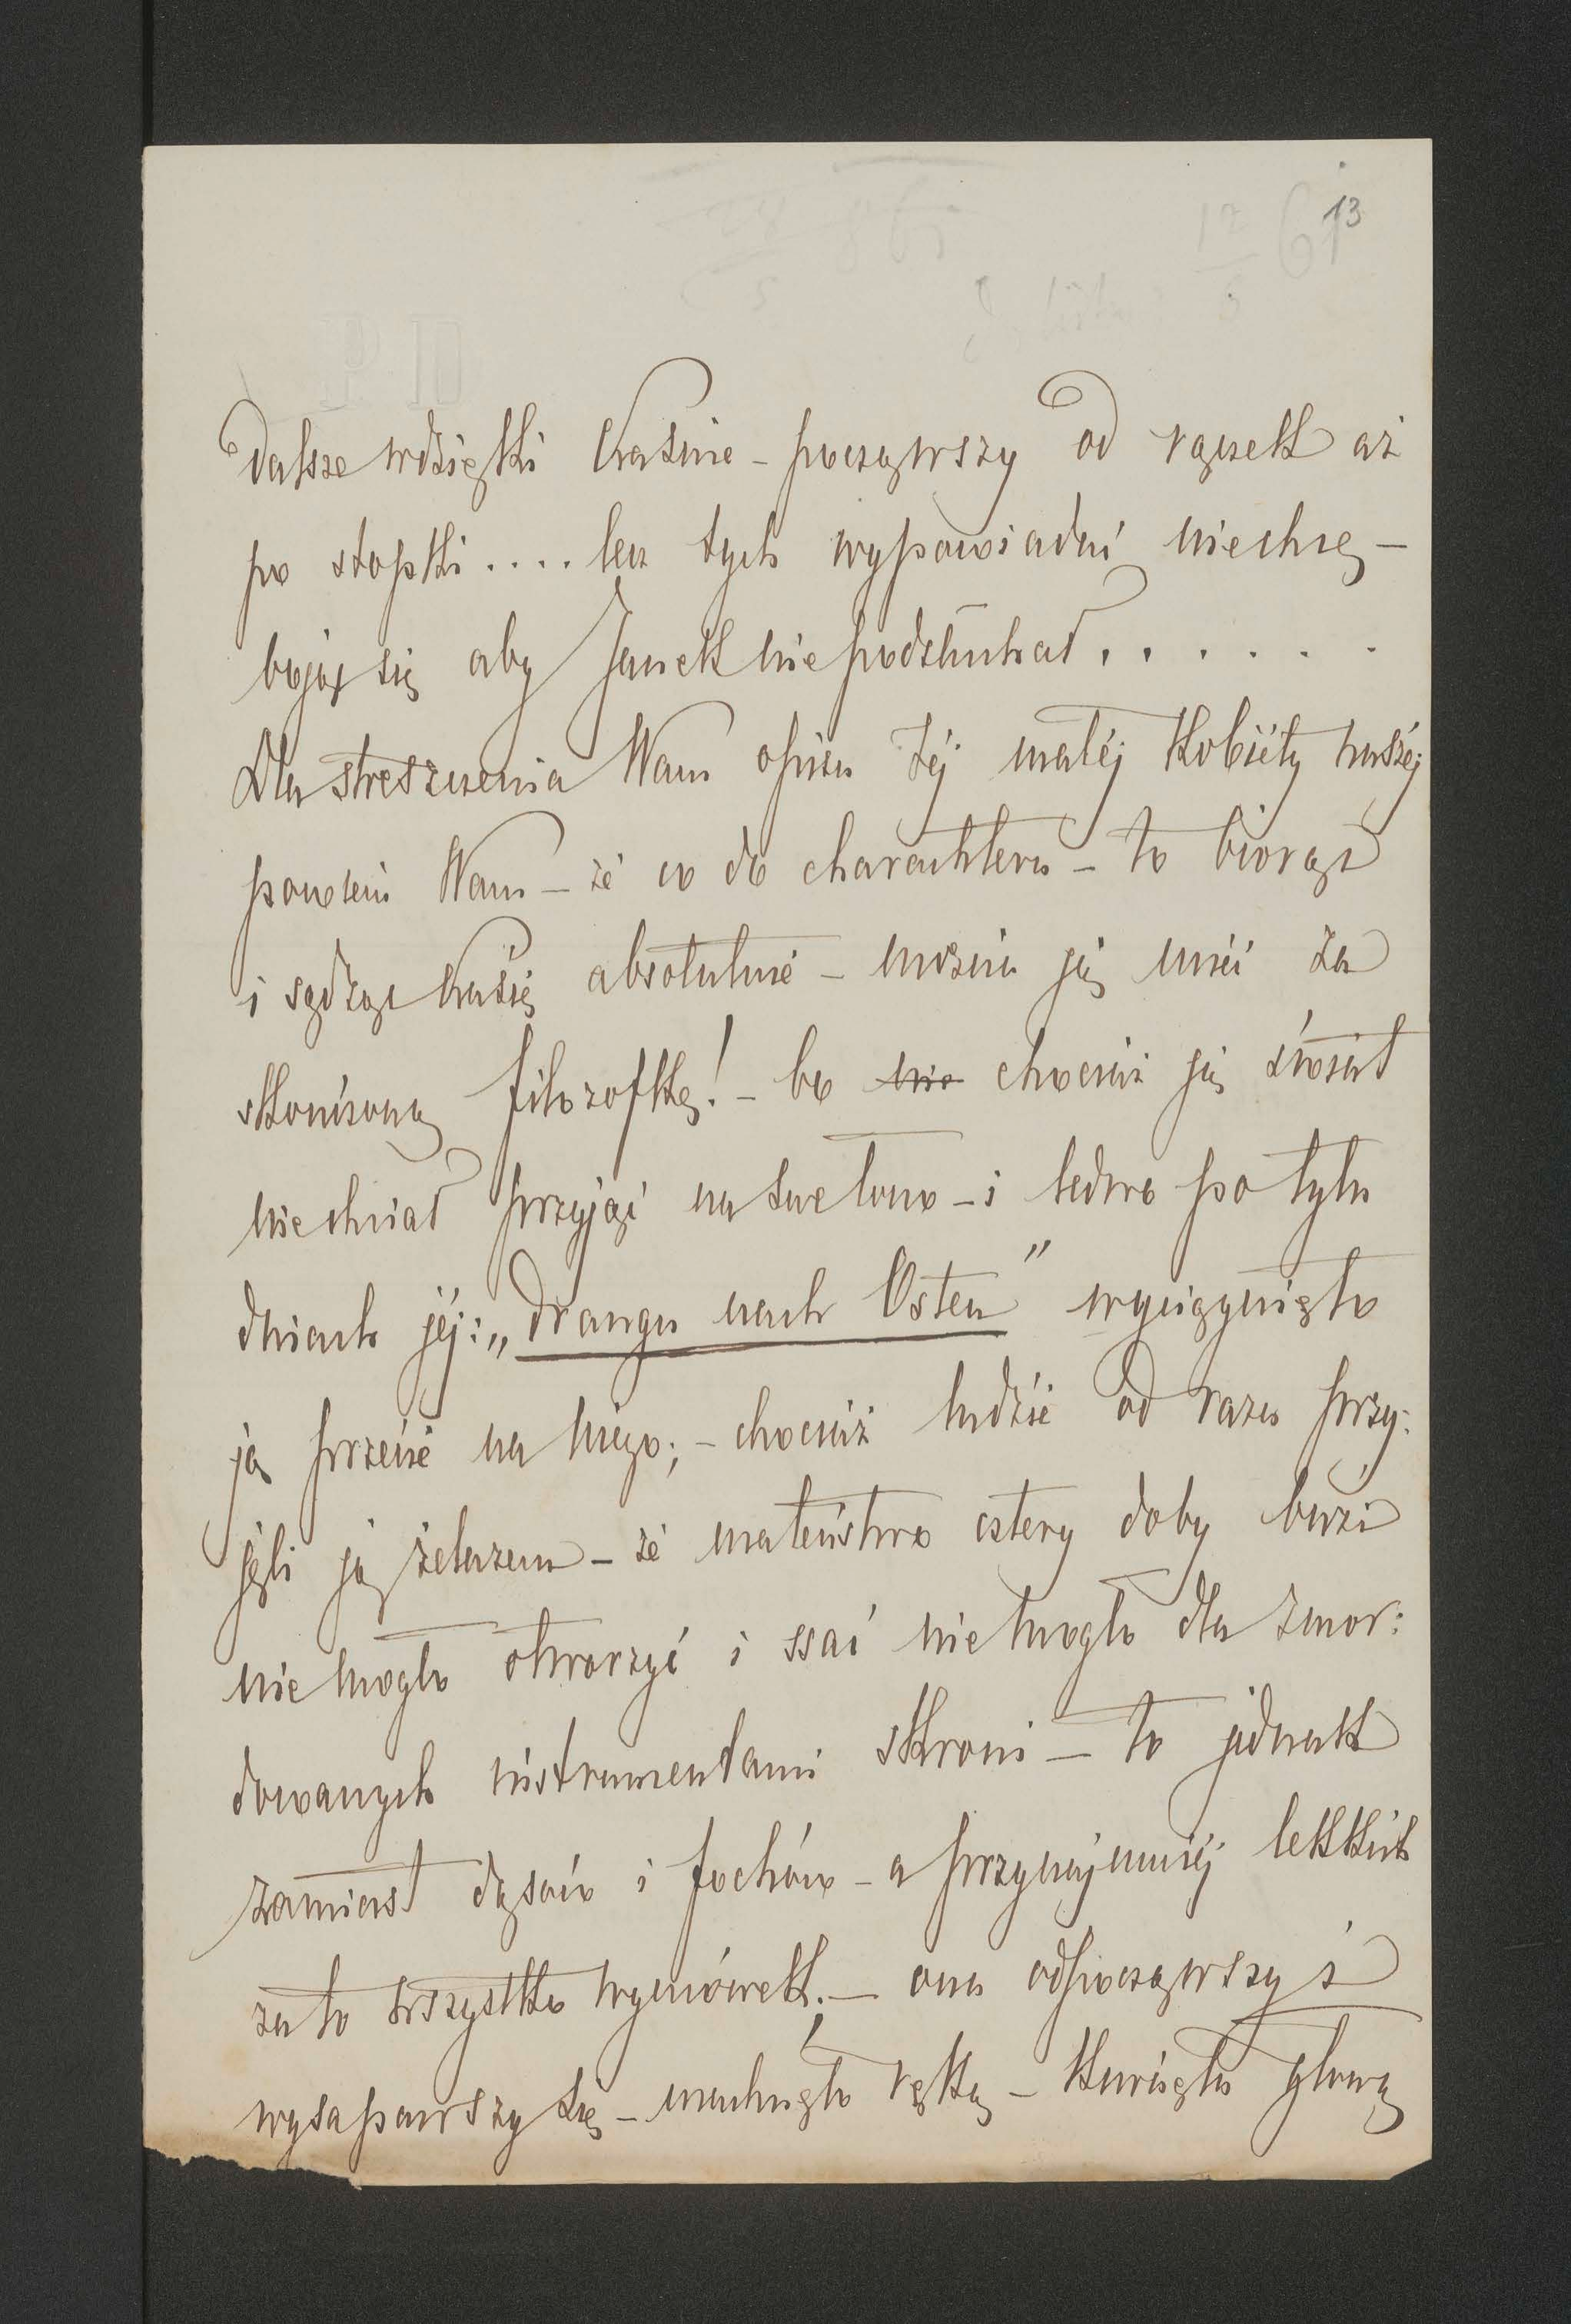 13
dalsze wdzięki Kasine - począwszy od rączek aż
po stopki .... lecz tych wypowiadać niechcę -
bojąc się aby Janek nie podsłuchał . . . . . .
Dla streszczenia Wam opisu téj małéj Kobiéty naszéj
powiem Wam - że co do charakteru - to biorąc
i sądząc Kasię absolutnie - można ją mieć za
skończoną filozofkę! - bo nie chociaż ją świat
niechciał przyjąć na swe łono - i ledwo po tylu
dniach jéj: „drangu nach Osten" wyciągnięto
ją przecie na niego; - chociaż ludzie od razu przy-
jęli ją żelazem - że maleństwo cztery doby buzi
nie mogło otworzyć i ssać nie mogło dla zmor-
dowanych instrumentami skroni - to jednak
zamiast dąsów i fochów - a przynajmniéj lekkich
za to wszystko wymówek. - ona odpocząwszy i
wysapawszy się - machnęła rączką - kiwnęła głową